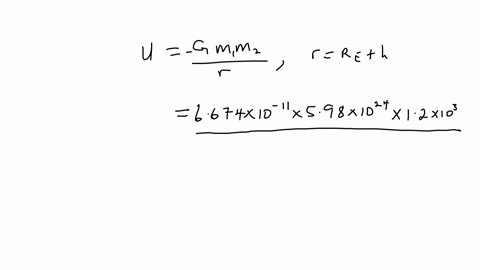 U = -G m₁m₂ / r , r = R_E + h
= 6.674×10⁻¹¹ × 5.98×10²⁴ × 1.2×10³